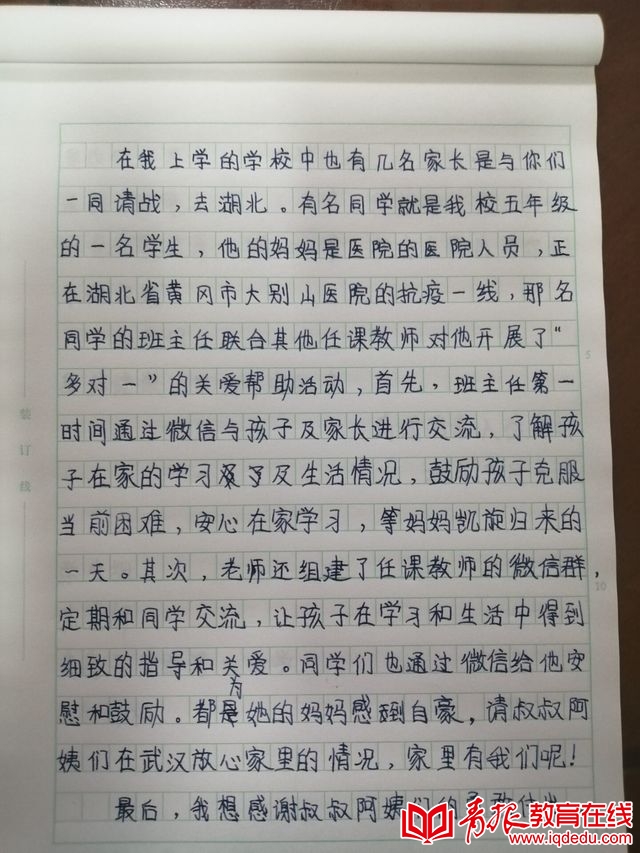 在我上学的学校中也有几名家长是与你们
一同请战，去湖北。有名同学就是我校五年级
的一名学生，他的妈妈是医院的医院人员，正
在湖北省黄冈市大别山医院的抗疫一线，那名
同学的班主任联合其他任课教师对他开展了“
多对一”的关爱帮助活动，首先，班主任第一
时间通过微信与孩子及家长进行交流，了解孩
子在家的学习及生活情况，鼓励孩子克服
当前困难，安心在家学习，等妈妈凯旋归来的
一天。其次，老师还组建了任课教师的微信群，
定期和同学交流，让孩子在学习和生活中得到
细致的指导和关爱。同学们也通过微信给他安
慰和鼓励。都为她的妈妈感到自豪，请叔叔阿
姨们在武汉放心家里的情况，家里有我们呢！
最后，我想感谢叔叔阿姨们的
装订线
5
10
青报教育在线
www.iqdedu.com